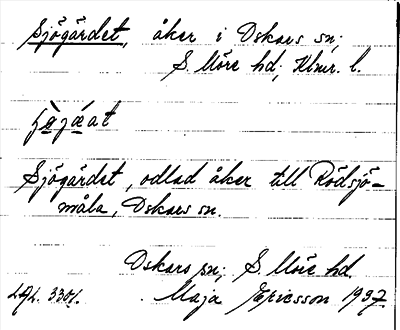 Sjögärdet, åker i Oskars sn;
S. Möre hd; Klmr. l.
Sjögärdet, odlad åker till Rödsjö-
måla, Oskars sn.
Oskars sn; S. Möre hd.
Maja Ericsson 1937.